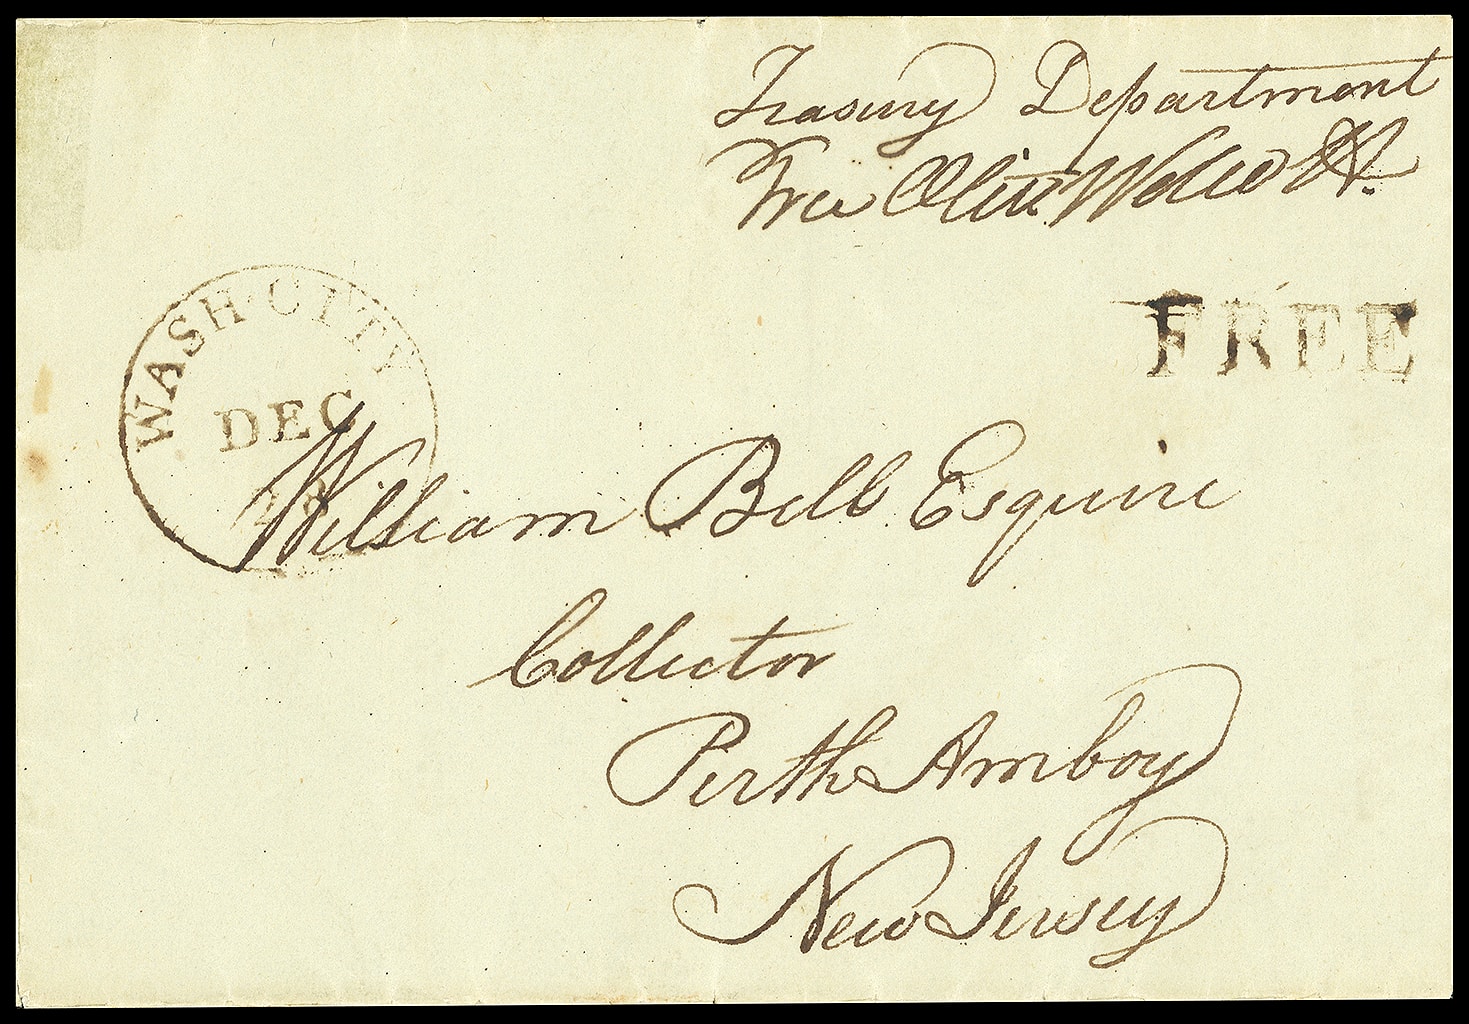 Treasury Department
Free Oliv Wolcott Jr.
FREE
WASH. CITY
DEC
William Bell Esquire
Collector
Perth Amboy
New Jersey